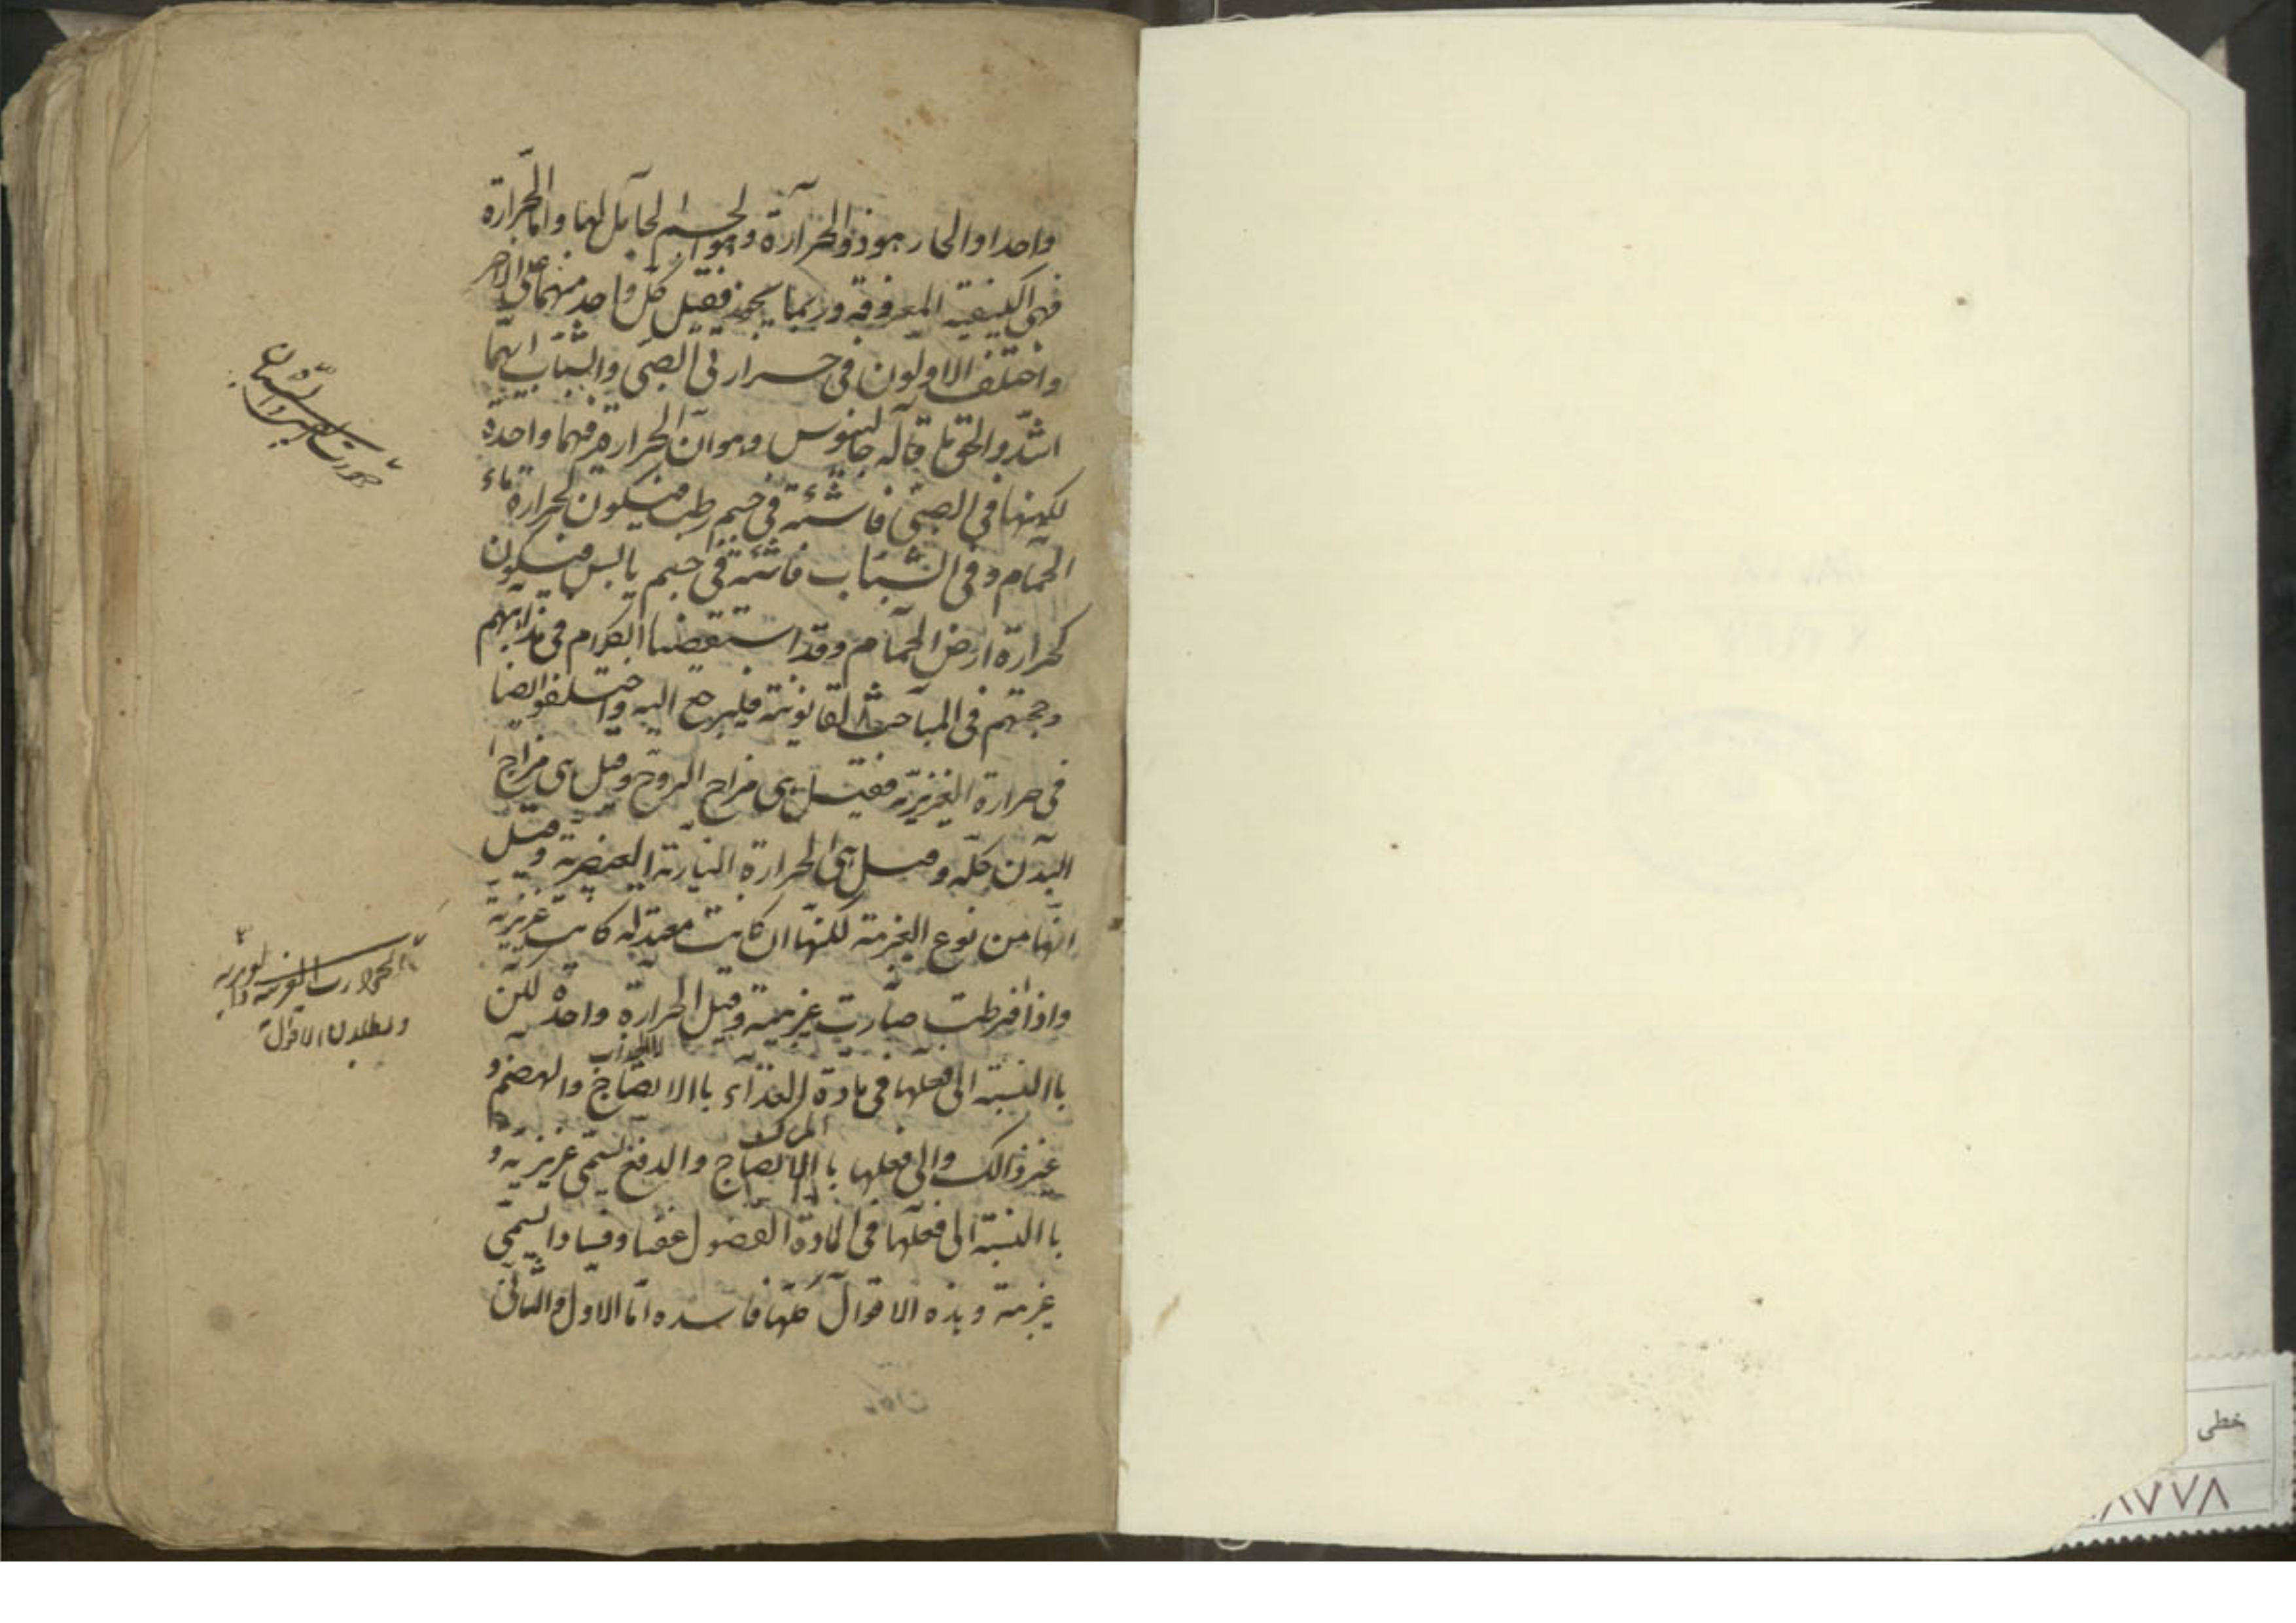 واحدا والحار هو ذو الحرارة وهو الجسم الحامل لهما واما الحرارة
فهي الكيفية المعروفة وربما يجوز فقيل كل واحد منهما على الاخر
واختلف الاولون في حرارتي الصبى والشباب ايهما
اشد والحق ما قاله جالينوس وهو ان الحرارة فيهما واحدة
لكنها في الصبى فاشئة في جسم رطب فيكون لحرارة ماء
الحمام وفي الشباب فاشئة في جسم يابس فيكون
كحرارة ارض الحمام وقد استقصينا الكلام في مذاهبهم
وحججهم في المباحث القانونية فليرجع اليه واختلفوا ايضا
في حرارة الغريزية فقيل هي مزاج الروح وقيل هي مزاج
البدن كله وقيل هي الحرارة النارية العنصرية وقيل
انها من نوع الغريبة لكنها ان كانت معتدلة كانت غريزية
واذا افرطت صارت غريبة وقيل الحرارة واحدة لكن
باالنسبة الى فعلها في مادة الغذاء باالانضاج والهضم و
غير ذالك والى فعلها باالانضاج والدفع تسمى غريزية و
باالنسبة الى فعلها في المادة الفضول عفنا وفسادا تسمى
غريبة وهذه الاقوال كلها فاسده اما الاول والثانى
الحرارت الغريزية و
وبطلان الاقوال
خطى
۸۷۷۸